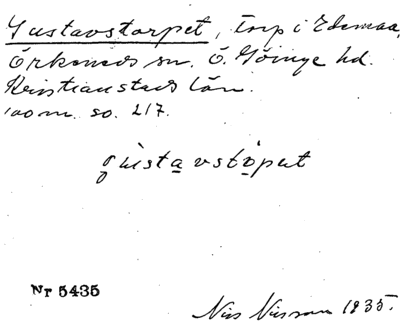 Gustavstorpet, torp i Edemaa,
Örkeneds sn. Ö. Göinge hd.
Kristianstads län.
100 m. so. 2/7.
gustavstoput
Nr 5435
Nils Nilsson 1935.